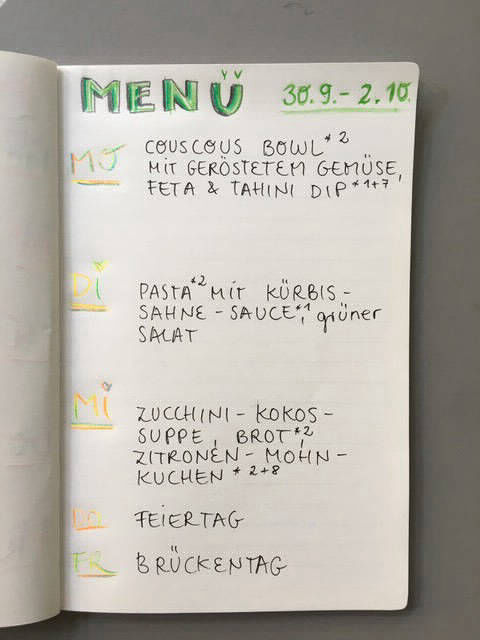 MENÜ 30.9.-2.10.
MO COUSCOUS BOWL*2
MIT GERÖSTETEM GEMÜSE,
FETA & TAHINI DIP *1+7
DI PASTA*2 MIT KÜRBIS-
SAHNE-SAUCE*1, grüner
SALAT
Mi ZUCCHINI-KOKOS-
SUPPE, BROT*2,
ZITRONEN-MOHN-
KUCHEN *2+8
DO FEIERTAG
FR BRÜCKENTAG